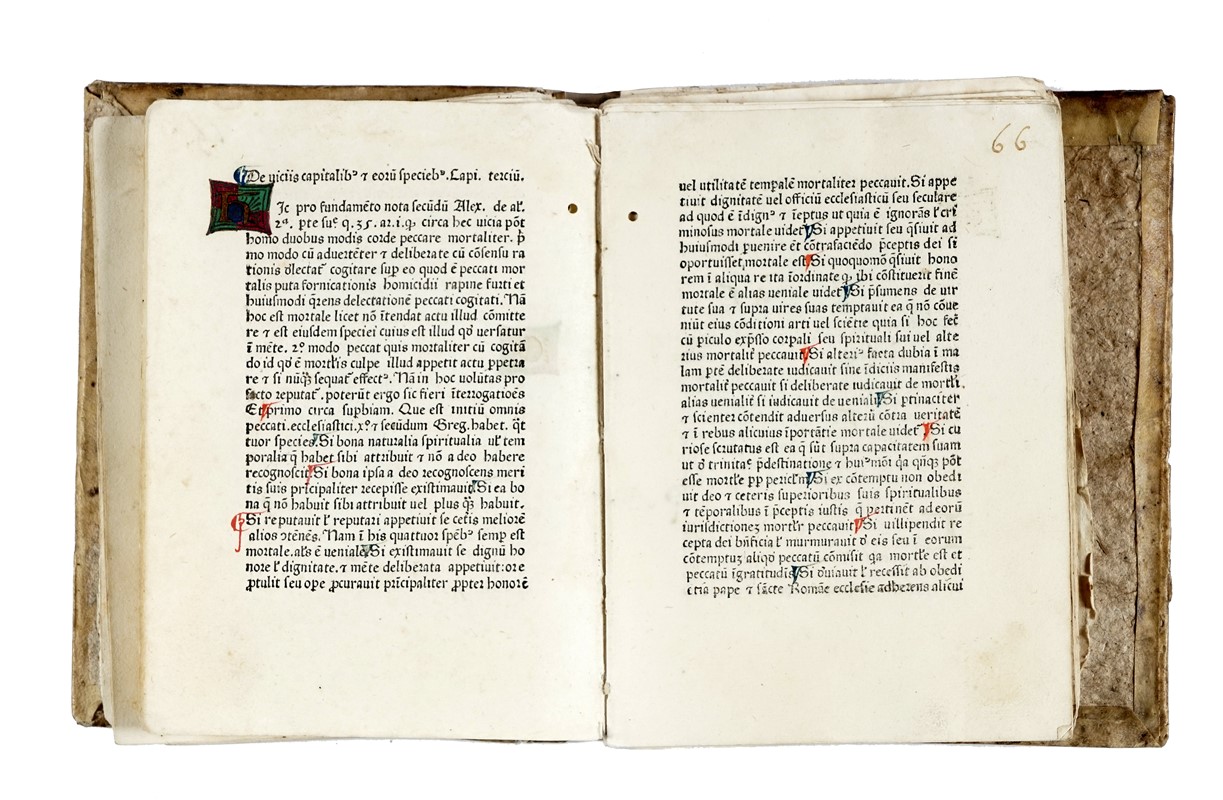 De uiciis capitalibꝰ ⁊ eorū speciebꝰ. Capi. terciū.
Ic pro fundamēto nota secūdū Alex. de al'.
2ᵃ. pte suᵉ q. 35. ar. i. ꝙ circa hec uicia pōt
homo duobus modis corde peccare mortaliter. p̄
mo modo cū aduertēter ⁊ deliberate cū cōsensu ra
tionis dlectat᷒ cogitare sup eo quod ē peccati mor
talis puta fornicationis homicidii rapine furti et
huiusmodi q̄rens delectationē peccati cogitati. Nā
hoc est mortale licet nō ītendat actu illud cōmitte
re ⁊ est eiusdem speciei cuius est illud qd' uersatur
ī mēte. 2º modo peccat quis mortaliter cū cogitā
do id qd' ē mortl'is culpe illud appetit actu ꝑpetra
re ⁊ si nūq̄ꝫ sequat᷒ effectꝰ. Nā in hoc uolūtas pro
facto reputat᷒. poterūt ergo sic fieri īterrogatiōēs
Et primo circa supbiam. Que est initiū omnis
peccati. ecclesiastici. xº. ⁊ secūdum Greg. habet. q̄t
tuor species. Si bona naturalia spiritualia ul' tem
poralia q̄ habet sibi attribuit ⁊ nō a deo habere
recognoscit. Si bona ipsa a deo recognoscens meri
tis suis prīcipaliter recepisse existimauit. Si ea bo
na q̄ nō habuit sibi attribuit uel plus q̄ꝫ habuit.
Si reputauit l' reputari appetiuit se cet̄is meliorē
alios ⁊tēnēs. Nam ī his quattuor spēbꝰ semp est
mortale. al's ē ueniale. Si existimauit se dignū ho
nore l' dignitate. ⁊ mēte deliberata appetiuit: ore
ꝓtulit seu ope ꝓcurauit prīcipaliter ꝓpter honorē
66
uel utilitatē tempalē mortaliter peccauit. Si appe
tiuit dignitatē uel officiū ecclesiasticū seu seculare
ad quod ē īdignꝰ ⁊ īeptus ut quia ē ignorās l' cri
minosus mortale uidet᷒. Si appetiuit seu q̄siuit ad
huiusmodi puenire ēt cōtrafaciēdo p̄ceptis dei si
oportuisset, mortale est. Si quoquomō q̄siuit hono
rem ī aliqua re ita īordinate ꝙ ibi cōstituerit finē
mortale ē alias ueniale uidet᷒. Si p̄sumens de uir
tute sua ⁊ supra uires suas temptauit ea q̄ nō cōue
niūt eius cōditioni arti uel sciētie quia si hoc fec̄
cū piculo exp̄sso corpali seu spirituali sui uel alte
rius mortalit̄ peccauit. Si alteriꝰ facta dubia ī ma
lam ptē deliberate iudicauit sine īdiciis manifestis
mortalit̄ peccauit si deliberate iudicauit de mortl'i.
alias uenialit̄ si iudicauit de ueniali. Si ptinaciter
⁊ scienter cōtendit aduersus alterū cōtra ueritatē
⁊ ī rebus alicuius īportātie mortale uidet᷒. Si cu
riose scrutatus est ea q̄ sūt supra capacitatem suam
ut d' trinitaᵉ p̄destinatione ⁊ huiꝰmōi q̄a qn̄qꝫ pōt
esse mortl'e pp pericl'm. Si ex cōtemptu non obedi
uit deo ⁊ ceteris superioribus suis spiritualibus
⁊ tēporalibus ī p̄ceptis iustis q̄ pertinēt ad eorū
iurisdictioneꝫ mortl'r peccauit. Si uillipendit re
cepta dei bn̄ficia l' murmurauit d' eis seu ī eorum
cōtemptuꝫ aliqd' peccatū cōmisit qa mortl'e est et
peccatū īgratitudis. Si d'uiauit l' recessit ab obedi
ētia pape ⁊ sācte Romāe ecclesie adherens alicui